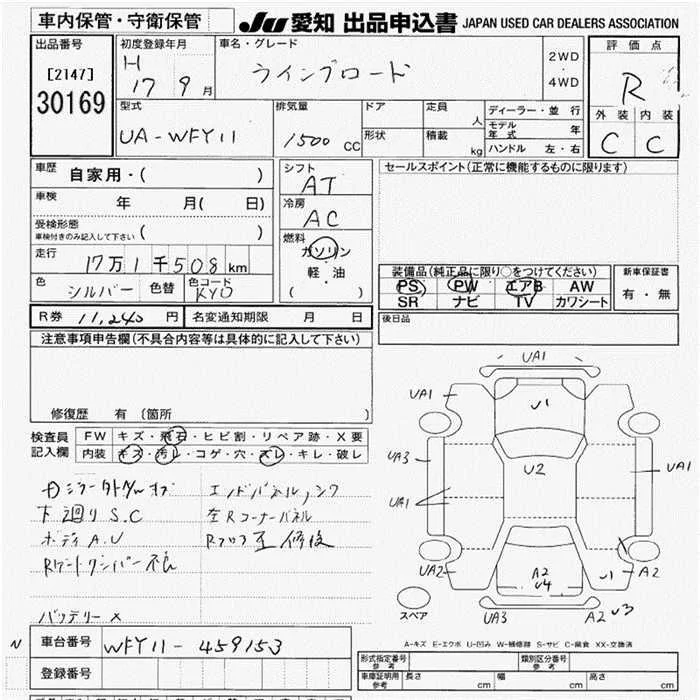 車内保管・守衛保管 JU 愛知 出品申込書 JAPAN USED CAR DEALERS ASSOCIATION
出品番号 初度登録年月 車名・グレード 評価点
[2147] H 17 9 月 ウイングロード 2WD ・ 4WD R
30169 外装 内装
型式 排気量 ドア 定員 人 ディーラー・並行
UA-WFY11 1500 CC 形状 積載 kg モデル年式 年 C C
ハンドル 左・右
車歴 自家用・( ) シフト AT セールスポイント(正常に機能するものに限ります)
車検 年 月( 日) 冷房 AC
受検形態 車検付きのみ記入して下さい ( ) 燃料 ガソリン
走行 17万1千508km ・ 軽・油 装備品(純正品に限り○をつけてください) 新車保証書
色 シルバー 色替 色コード KY0 ( ) PS PW エアB AW 有・無
SR ナビ TV カワシート
R券 11,240 円 名変通知期限 月 日 後日品
注意事項申告欄(不具合内容等は具体的に記入して下さい)
修復歴 有 〔箇所 〕
検査員 FW キズ・飛石・ヒビ割・リペア跡・X要
記入欄 内装 キズ・汚レ・コゲ・穴・スレ・キレ・破レ
下廻りS.C 左Rコーナーパネル
ボディA.U Rフロア 修復
バッテリー×
UA1
UA1 U1
UA3 U2 UA1
UA1
UA2 A2 U4 U1 A2
スペア UA3 A2 U3
A-キズ E-エクボ U-凹み W-補修跡 S-サビ C-腐食 XX-交換済
N 車台番号 WFY11-459153
登録番号
形式指定番号 参考 類別区分番号 参考
車庫証明用 参考 長さ cm 幅 cm 高さ cm